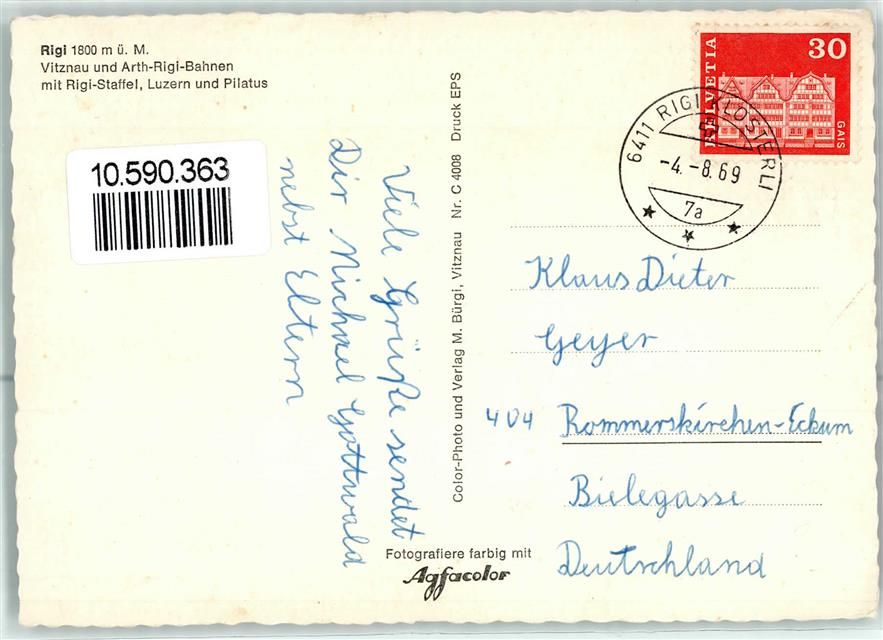 Rigi 1800 m ü. M.
Vitznau und Arth-Rigi-Bahnen
mit Rigi-Staffel, Luzern und Pilatus
10.590.363
Viele Grüße sendet
Dir Michael Gottwald
nebst Eltern
Color-Photo und Verlag M. Bürgi, Vitznau Nr. C 4008 Druck EPS
Fotografiere farbig mit
Agfacolor
HELVETIA
30
GAIS
6411 RIGI KLÖSTERLI
-4.-8.69
7a
Klaus Dieter
Geyer
404 Rommerskirchen-Eckum
Bielegasse
Deutschland